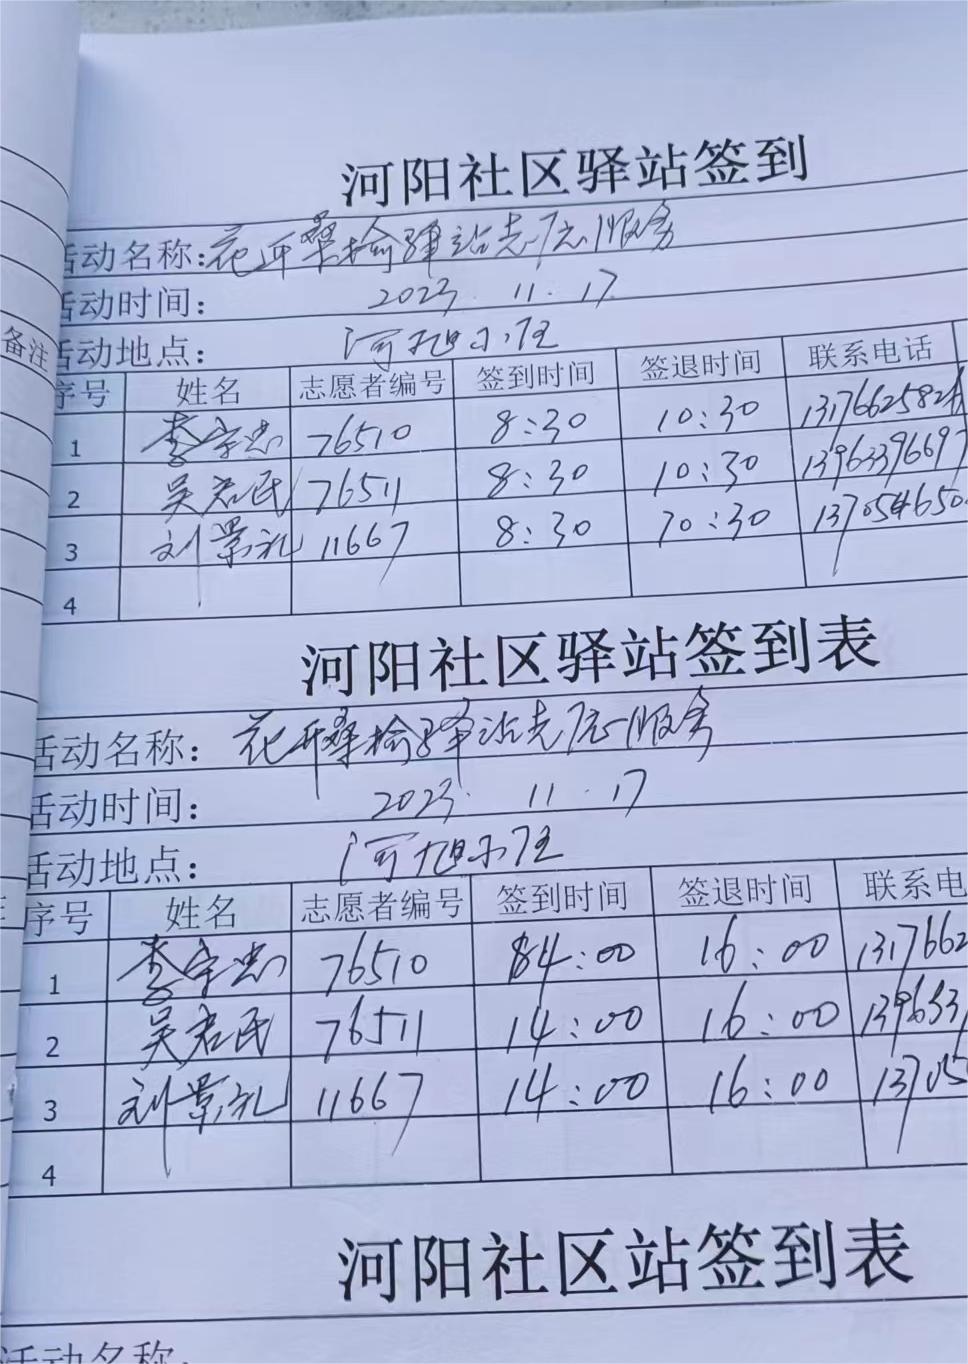 河阳社区驿站签到
活动名称:花开桑榆驿站志愿服务
活动时间: 2023. 11. 17.
备注
活动地点: 河旭小区
序号 姓名 志愿者编号 签到时间 签退时间 联系电话
1 李宗忠 76510 8:30 10:30 131766258
2 吴君民 76511 8:30 10:30 13963396697
3 刘景礼 11667 8:30 10:30 137054650
4
河阳社区驿站签到表
活动名称: 花开桑榆驿站志愿服务
活动时间: 2023. 11. 17
活动地点: 河旭小区
序号 姓名 志愿者编号 签到时间 签退时间 联系电
1 李宗忠 76510 14:00 16:00 1317662
2 吴君民 76511 14:00 16:00 139633
3 刘景礼 11667 14:00 16:00 13705
4
河阳社区站签到表
活动名称: